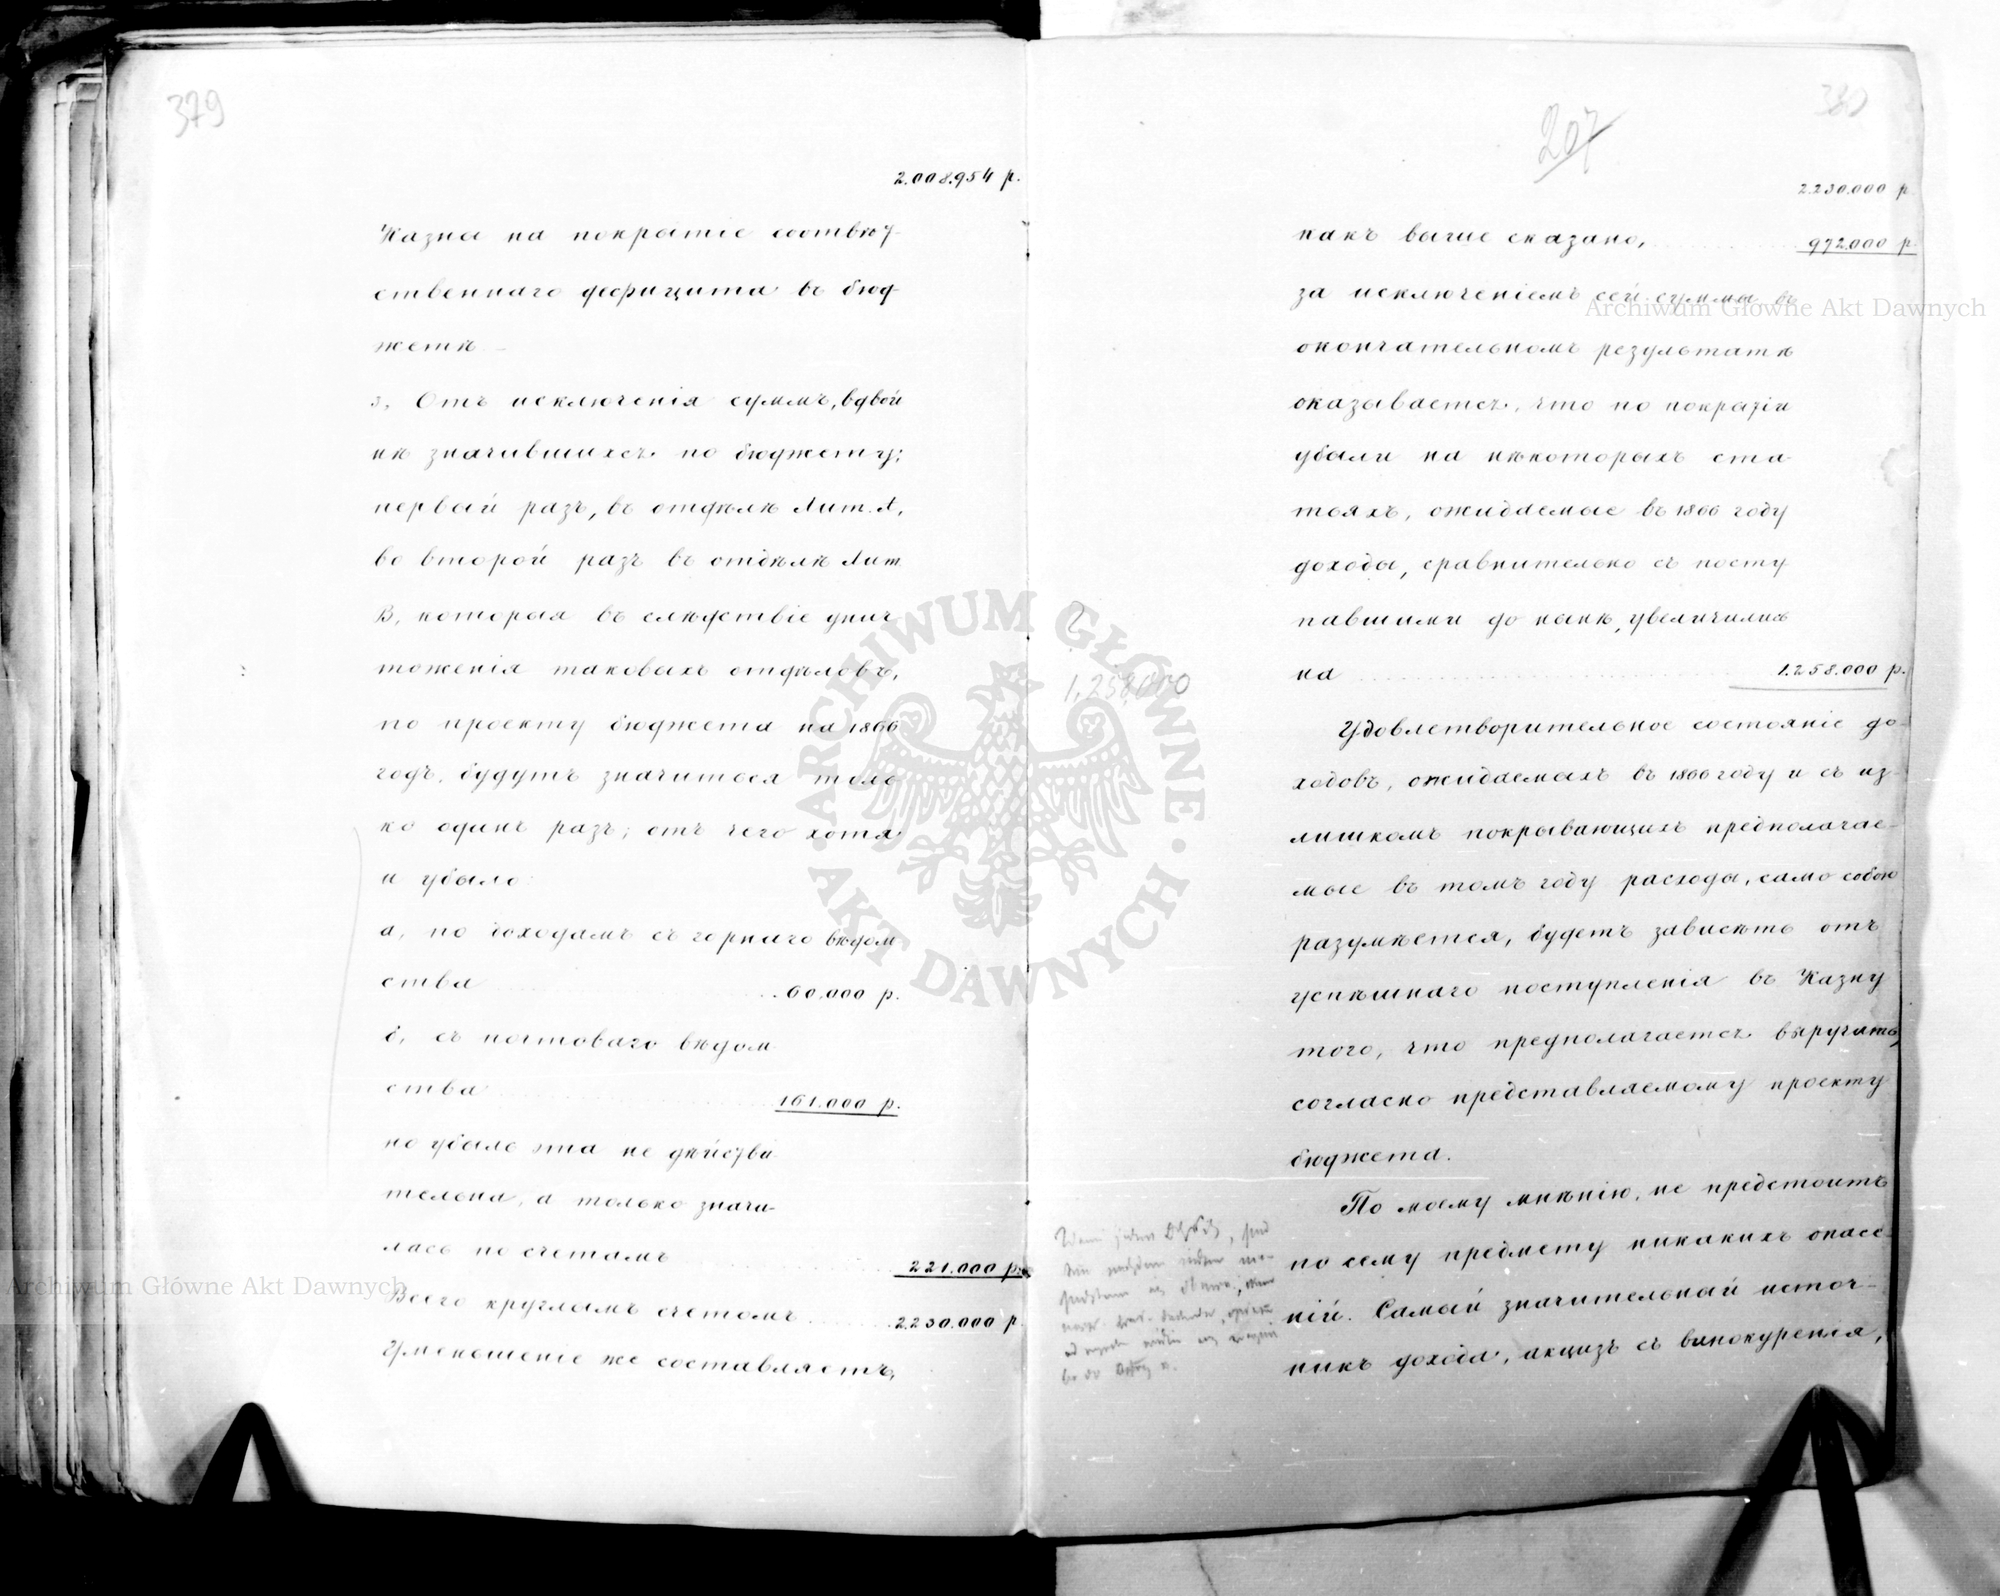 379
2.008.954 р.
Казны на покрытіе соотвѣт-
ственнаго дефицита въ бюд-
жетѣ.—
3, Отъ исключенія суммъ, вдвой
нѣ значившихся по бюджету;
первый разъ, въ отдѣлѣ Лит. А,
во второй разъ въ отдѣлѣ Лит
В, которыя въ слѣдствіе унич
тоженія таковыхъ отдѣловъ,
по проекту бюджета на 1866
годъ, будутъ значиться толь
ко одинъ разъ; отъ чего хотя
и убыло:
а, по доходамъ съ горнаго вѣдом
ства 60.000 р.
б, съ почтоваго вѣдом
ства 161.000 р.
но убыль эта не дѣйстви
тельна, а только значи-
лась по счетамъ 221.000 р.
Всего круглымъ счетомъ 2.230.000 р.
Уменьшеніе же составляетъ,
207
380
2.230.000 р.
какъ выше сказано, 972.000 р.
за исключеніемъ сей суммы въ
окончательномъ результатѣ
оказывается, что по покрытіи
убыли на нѣкоторыхъ ста
тьяхъ, ожидаемые въ 1866 году
доходы, сравнительно съ посту
павшими до нынѣ, увеличились
на 1.258.000 р.
?
1,258,000
Удовлетворительное состояніе до-
ходовъ, ожидаемыхъ въ 1866 году и съ из-
лишкомъ покрывающихъ предполагае-
мые въ томъ году расходы, само собою
разумѣется, будетъ зависѣть отъ
успѣшнаго поступленія въ Казну
того, что предполагается выручить,
согласно представляемому проекту
бюджета.
По моему мнѣнію, не предстоитъ
по сему предмету никакихъ опасе-
ній. Самый значительный источ-
никъ дохода, акцизъ съ винокуренія,
Archiwum Główne Akt Dawnych
Archiwum Główne Akt Dawnych
ARCHIWUM GŁÓWNE · AKT DAWNYCH ·